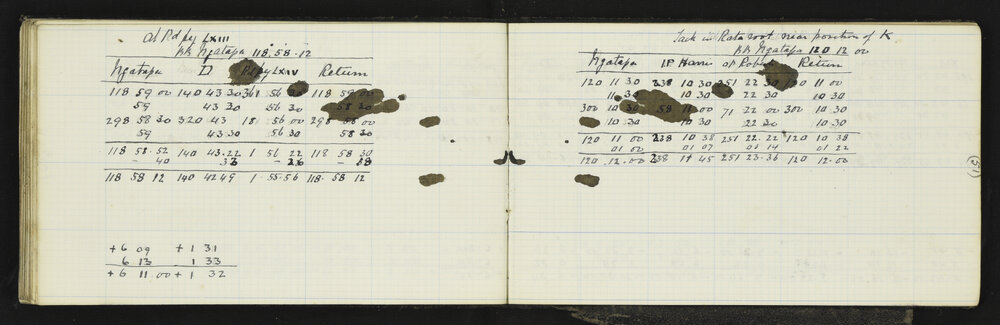 At Pd pg LXIII
BB Ngatapa 118. 58. 12
Ngatapa D LXIV Return
118 59 00 140 43 30 361 56 118 59 00
59 43 30 56 30 58 30
298 58 30 320 43 18 56 00 298 00
59 43 30 56 30 58 30
118 58. 52 140 43.22 1 56 22 118 58 30
- 40 - 26
118 58 12 140 42 49 1 55.56 118. 58 12
+ 6 09 + 1 31
6 13 1 33
+ 6 11 00 + 1 32
Tack in Rata root near position of K
BB Ngatapa 120 12 00
Ngatapa Return
120 11 30 238 10 30 251 22 30 11 00
11 10 30 22 30 10 30
300 10 30 58 11 00 71 22 00 300 10 30
10 30 10 30 22 30 10 30
120 11 00 238 10 38 251 22. 22 120 10 38
01 00 01 07 01 14 01 22
120 12. 00 238 11 45 251 23. 36 120 12. 00
(51)